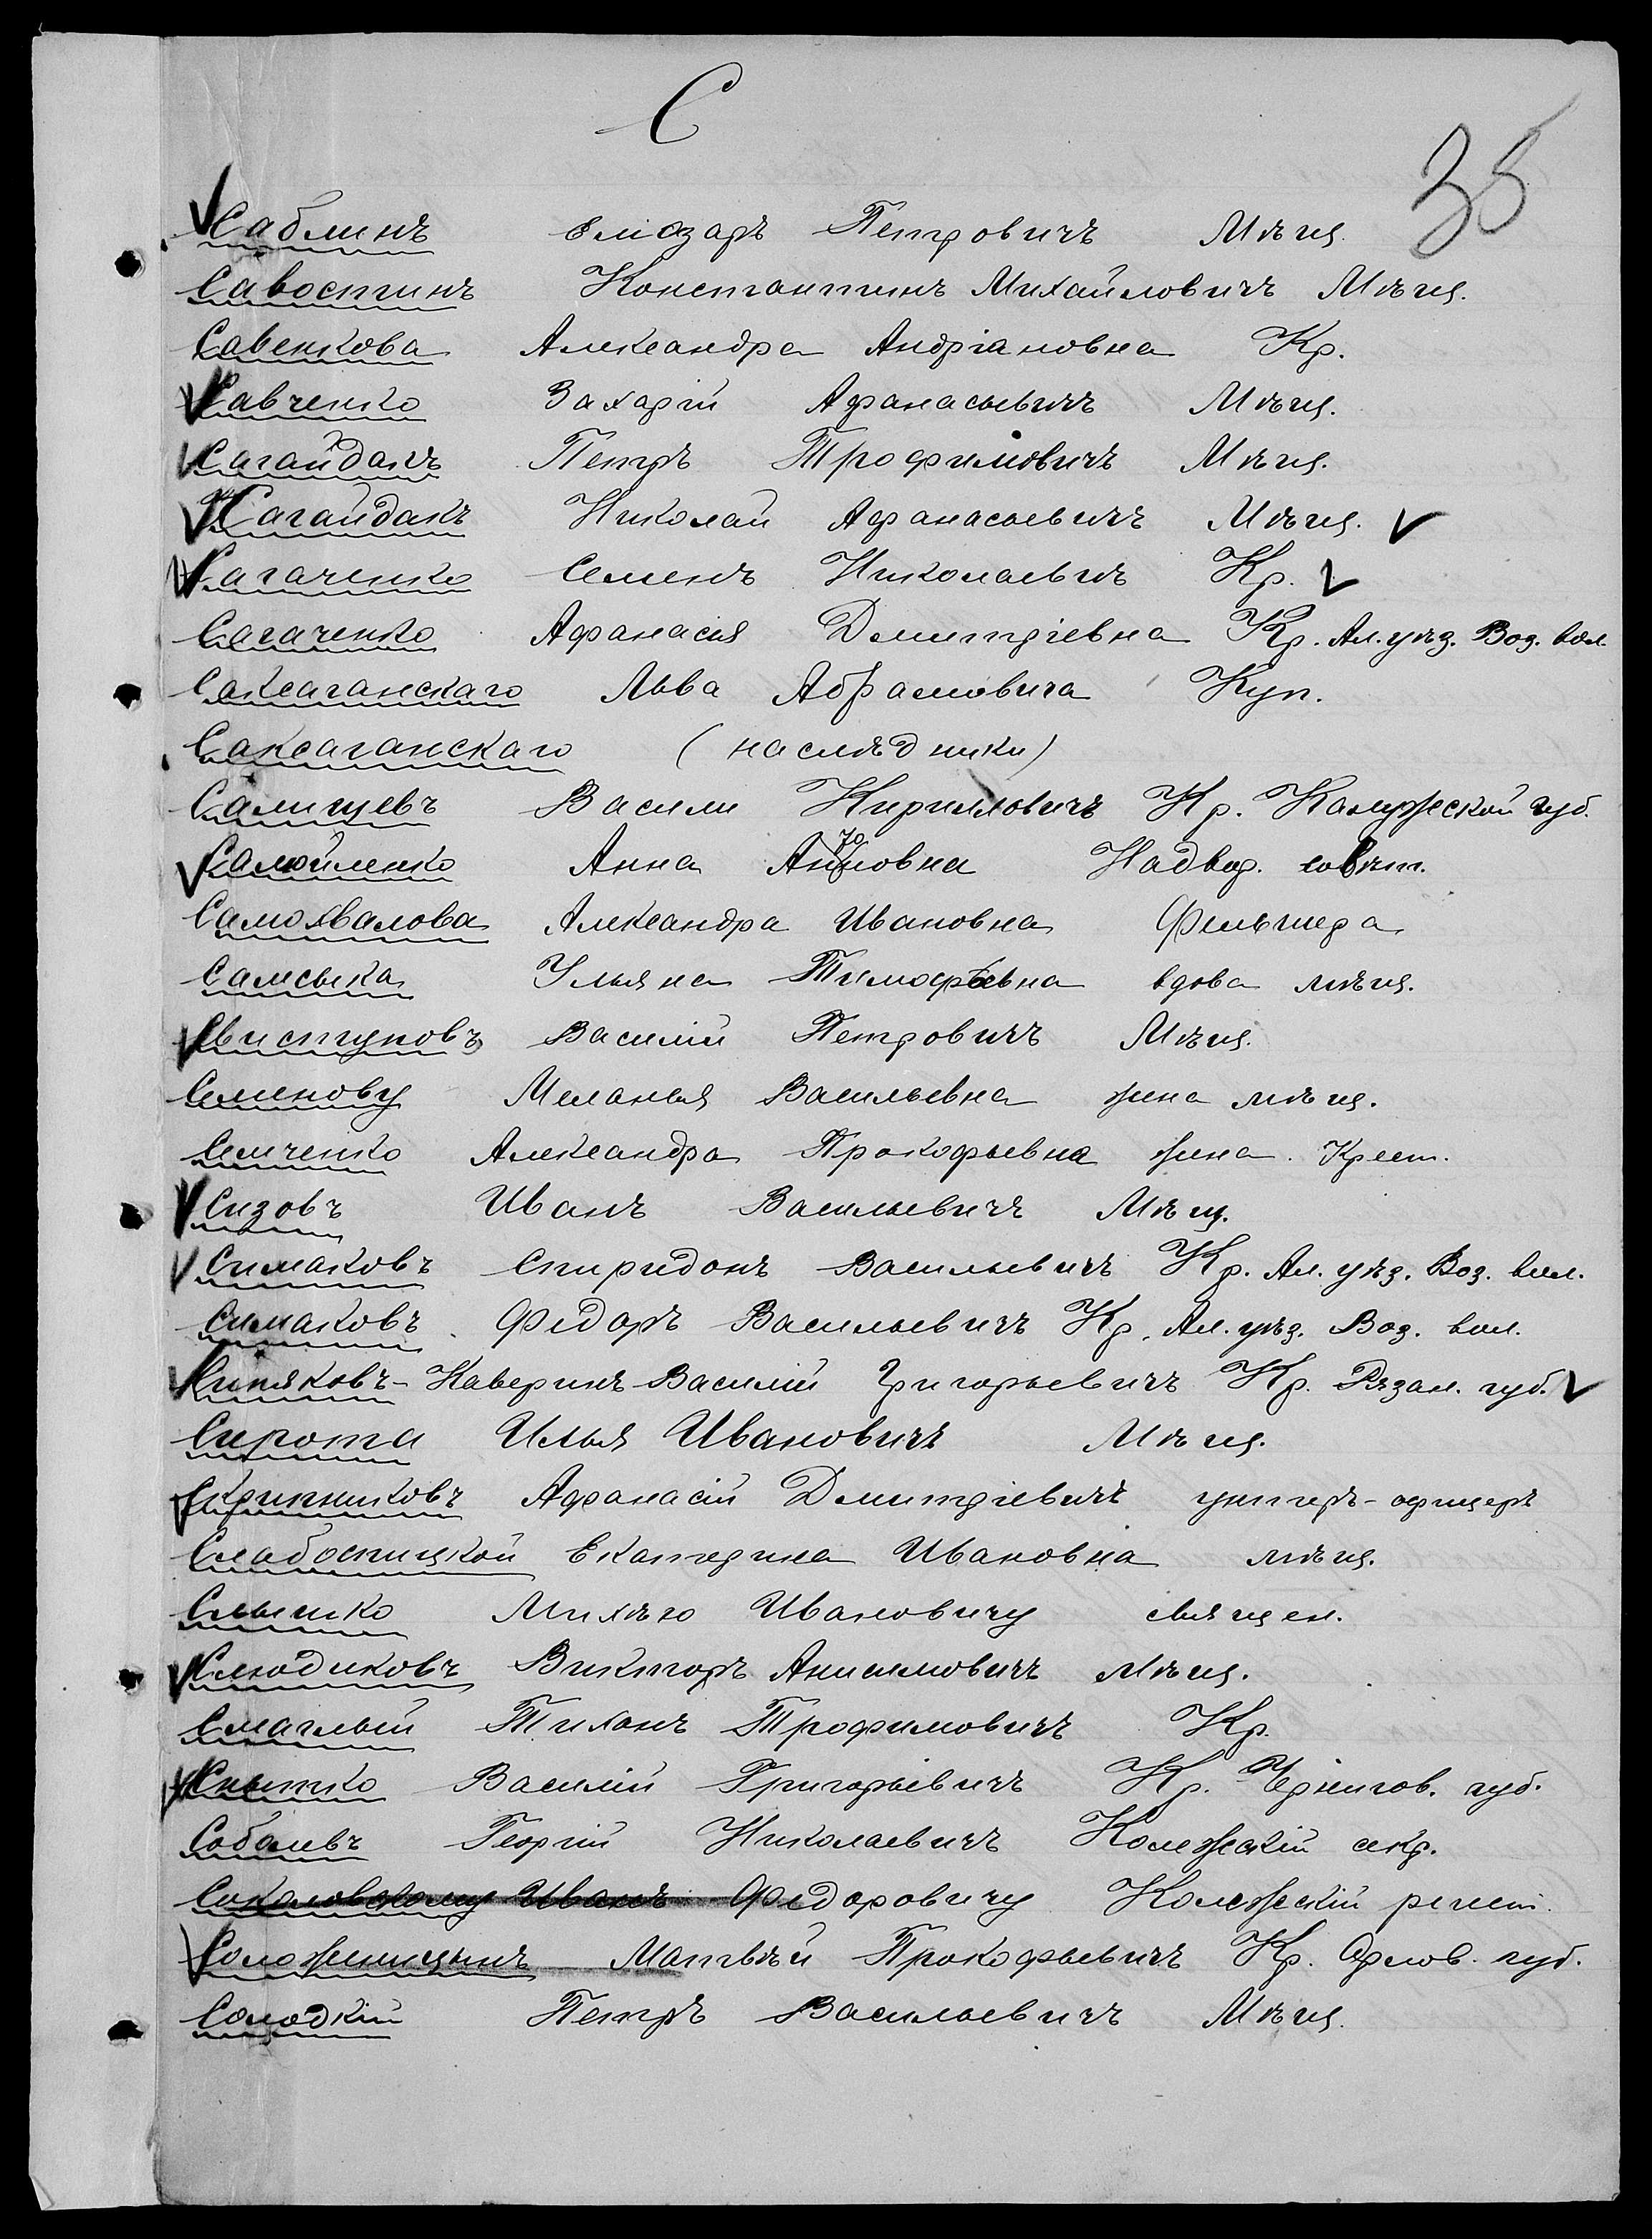 С
35
Саблинъ Елиазаръ Петровичъ Мѣщ.
Савостинъ Константинъ Михайловичъ Мѣщ.
Савенкова Александра Андріановна Кр.
Савченко Захарій Афанасьевичъ Мѣщ.
Сагайдакъ Петръ Трофимовичъ Мѣщ.
Сагайдакъ Николай Афанасьевичъ Мѣщ.
Сагаченко Семенъ Николаевичъ Кр.
Сагаченко Афанасія Дмитріевна Кр. Ал. уѣз. Воз. вол.
Саксаганскаго Льва Абрамовича Куп.
Саксаганскаго (наслѣдники)
Салищевъ Василій Кирилловичъ Кр. Калужской губ.
Самойленко Анна Надвор. совѣт.
Самохвалова Александра Ивановна Фельшера
Самсыка Ульяна Тимофѣевна вдова мѣщ.
Свистуновъ Василій Петровичъ Мѣщ.
Семенову Меланья Васильевна жена мѣщ.
Семченко Александра Прокофьевна жена Крест.
Сизовъ Иванъ Васильевичъ Мѣщ.
Симаковъ Спиридонъ Васильевичъ Кр. Ал. уѣз. Воз. вол.
Симаковъ Федоръ Васильевичъ Кр. Ал. уѣз. Воз. вол.
Синяковъ-Каверинъ Василій Григорьевичъ Кр. Рязан. губ.
Сирота Илья Ивановичъ Мѣщ.
Скрипниковъ Афанасій Дмитріевичъ унтеръ-офицеръ
Слабоспицкой Екатерина Ивановна мѣщ.
Ивановичу священ.
Слюдиковъ Викторъ Анисимовичъ Мѣщ.
Смаглый Тихонъ Трофимовичъ Кр.
Снытко Василій Григорьевичъ Кр. Чернигов. губ.
Соболевъ Георгій Николаевичъ Колежскій секр.
Соколовскому Иванъ Федоровичу Колежскій регист.
Соложеницынъ Матвѣй Прокофьевичъ Кр. Орлов. губ.
Солодкій Петръ Васильевичъ Мѣщ.